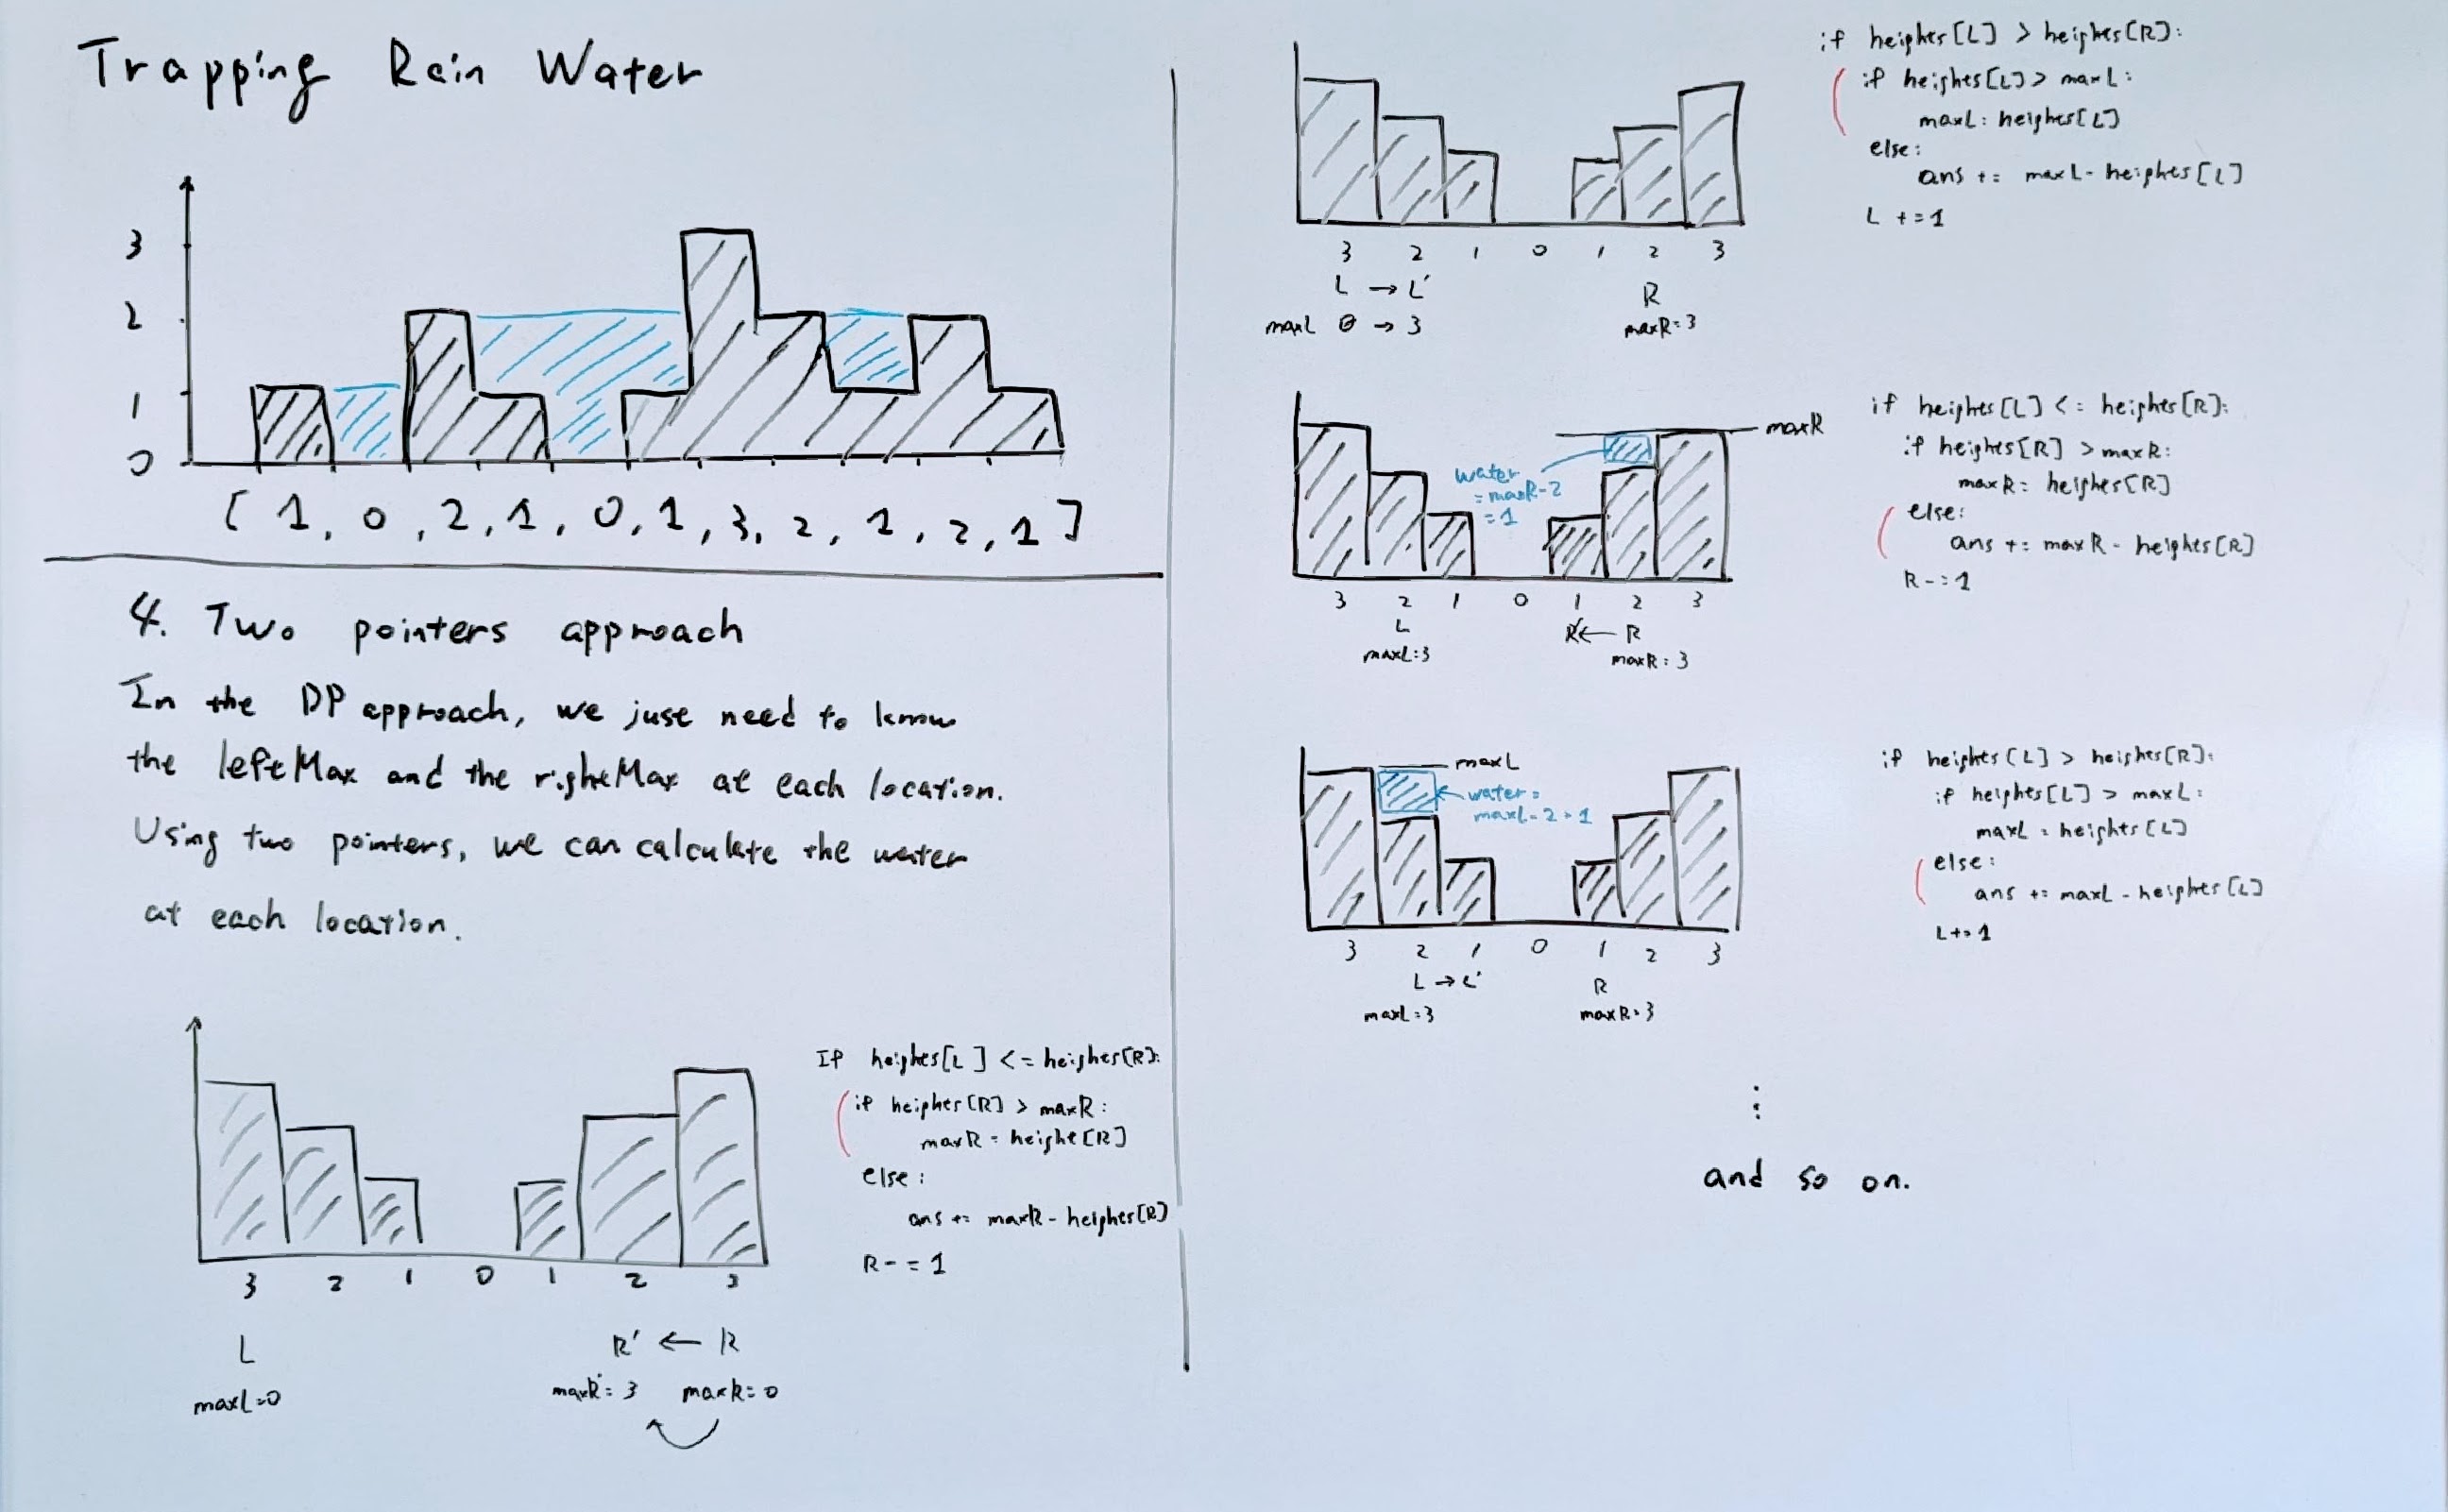 Trapping Rain Water
3
2
1
0
[ 1, 0, 2, 1, 0, 1, 3, 2, 1, 2, 1 ]
4. Two pointers approach
In the DP approach, we just need to know
the leftMax and the rightMax at each location.
Using two pointers, we can calculate the water
at each location.
3 2 1 0 1 2 3
L R' ← R
maxL=0 maxR'= 3 maxR=0
If heights[L] <= heights[R]:
if heights[R] > maxR:
maxR = height[R]
else:
ans += maxR - heights[R]
R -= 1
3 2 1 0 1 2 3
L → L' R
maxL 0 → 3 maxR=3
if heights[L] > heights[R]:
if heights[L] > maxL:
maxL= heights[L]
else:
ans += maxL - heights[L]
L +=1
maxR
water
= maxR-2
= 1
3 2 1 0 1 2 3
L R' ← R
maxL=3 maxR=3
if heights[L] <= heights[R]:
if heights[R] > maxR:
maxR= heights[R]
else:
ans += maxR - heights[R]
R -=1
maxL
water=
maxL-2=1
3 2 1 0 1 2 3
L → L' R
maxL=3 maxR=3
if heights[L] > heights[R]:
if heights[L] > maxL:
maxL = heights[L]
else:
ans += maxL - heights[L]
L+=1
⋮
and so on.